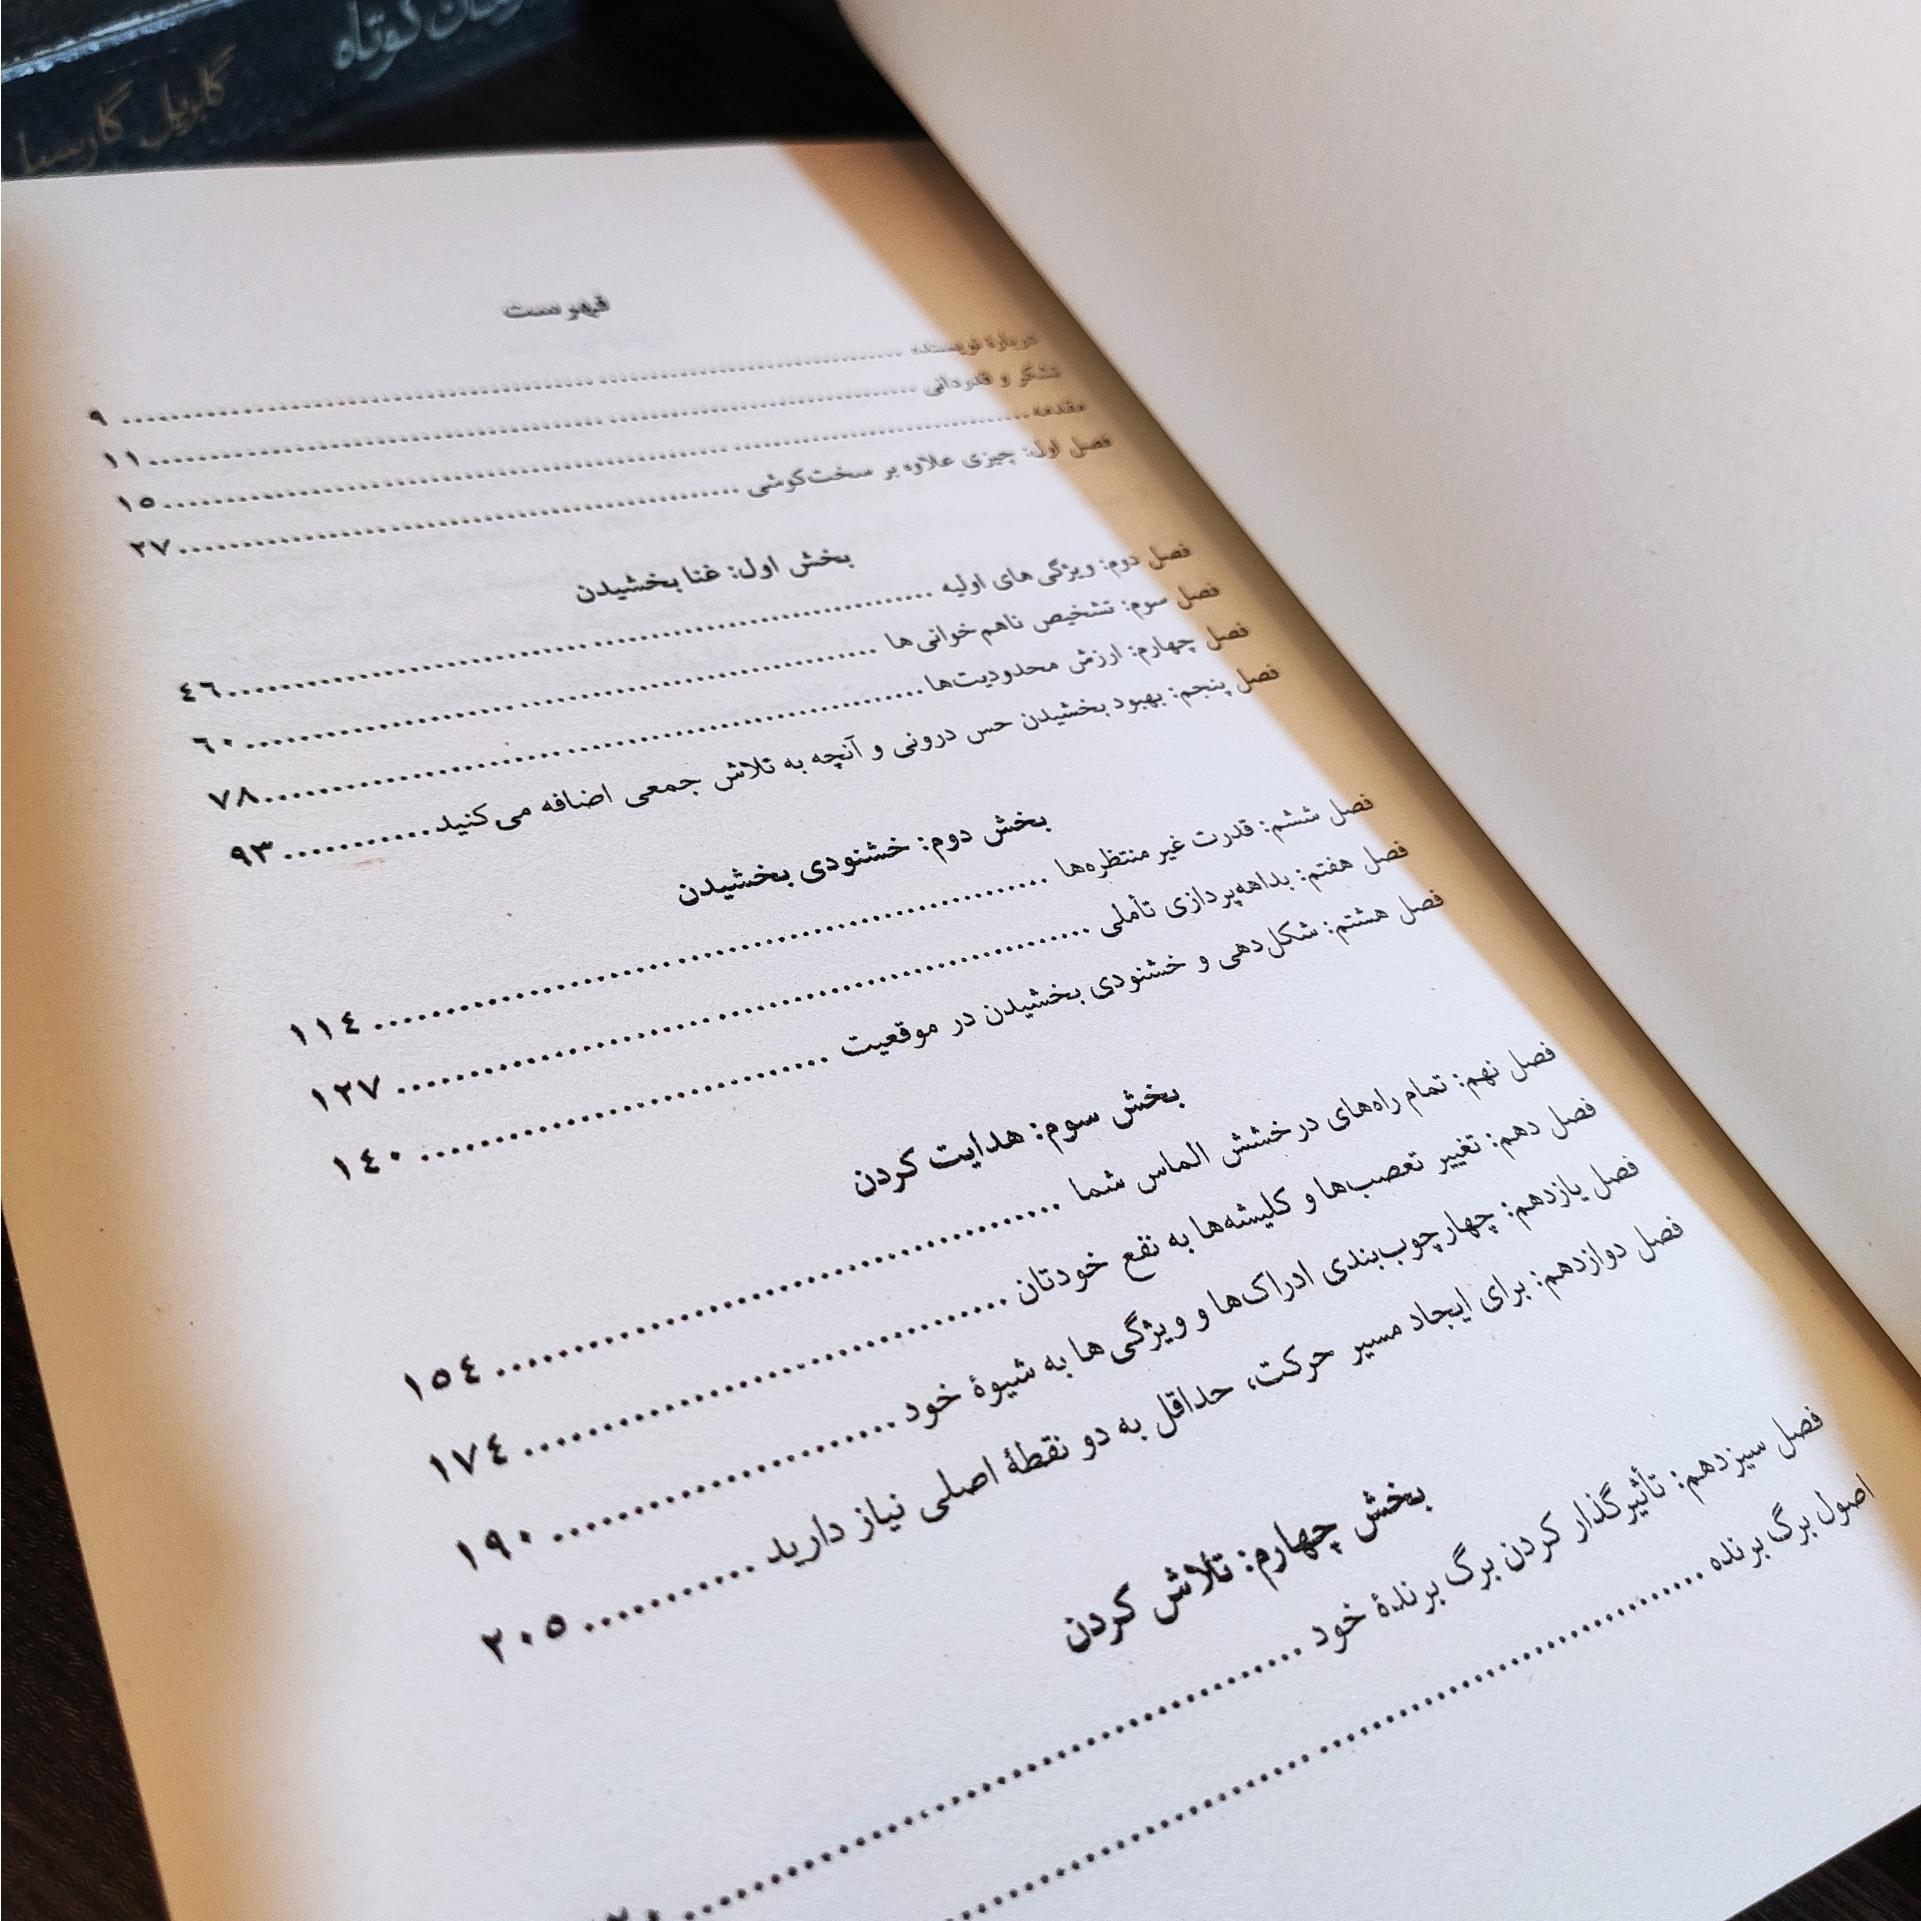 کوتاه
گابریل گارسیا
فهرست
دربارهٔ نویسنده ........ ۹
تشکر و قدردانی ........ ۱۱
مقدمه ........ ۱۵
فصل اول: چیزی علاوه بر سخت‌کوشی ........ ۲۷
بخش اول: غنا بخشیدن
فصل دوم: ویژگی‌های اولیه ........ ۴۶
فصل سوم: تشخیص ناهم‌خوانی‌ها ........ ۶۰
فصل چهارم: ارزش محدودیت‌ها ........ ۷۸
فصل پنجم: بهبود بخشیدن حس درونی و آنچه به تلاش جمعی اضافه می‌کنید ........ ۹۳
بخش دوم: خشنودی بخشیدن
فصل ششم: قدرت غیر منتظره‌ها ........ ۱۱۴
فصل هفتم: بداهه‌پردازی تأملی ........ ۱۲۷
فصل هشتم: شکل‌دهی و خشنودی بخشیدن در موقعیت ........ ۱۴۰
بخش سوم: هدایت کردن
فصل نهم: تمام راه‌های درخشش الماس شما ........ ۱۵۴
فصل دهم: تغییر تعصب‌ها و کلیشه‌ها به نفع خودتان ........ ۱۷۴
فصل یازدهم: چهارچوب‌بندی ادراک‌ها و ویژگی‌ها به شیوهٔ خود ........ ۱۹۰
فصل دوازدهم: برای ایجاد مسیر حرکت، حداقل به دو نقطهٔ اصلی نیاز دارید ........ ۲۰۵
بخش چهارم: تلاش کردن
فصل سیزدهم: تأثیرگذار کردن برگ برندهٔ خود ........
اصول برگ برنده ........